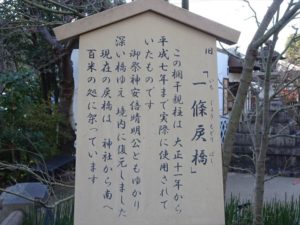 旧「一條戻橋」
いちじょうもどりばし
この欄干親柱は、大正十一年から
平成七年まで実際に使用されて
いたものです
御祭神安倍晴明公ともゆかり
深い橋ゆえ、境内に復元しました
現在の戻橋は、神社から南へ
百米の処に架っています